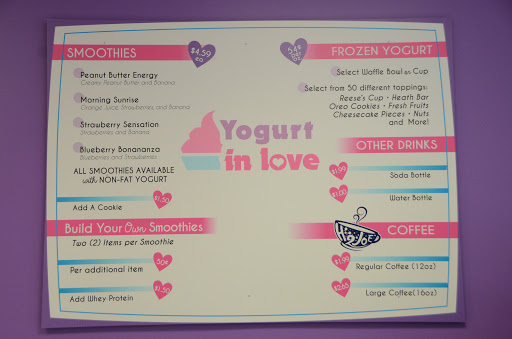 SMOOTHIES
$4.59
ea
Peanut Butter Energy
Creamy Peanut Butter and Banana
Morning Sunrise
Orange Juice, Strawberries and Banana
Strawberry Sensation
Strawberries and Banana
Blueberry Bonananza
Blueberries and Strawberries
ALL SMOOTHIES AVAILABLE
with NON-FAT YOGURT
$1.50
Add A Cookie
Build Your Own Smoothies
Two (2) Items per Smoothie
50¢
Per additional item
$1.50
Add Whey-Protein
Yogurt
in love
54¢
FROZEN YOGURT
Select Waffle Bowl or Cup
Select from 50 different toppings:
Reese's Cup • Heath Bar
Oreo Cookies • Fresh Fruits
Cheesecake Pieces • Nuts
and More!
OTHER DRINKS
$1.99
Soda Bottle
$1.00
Water Bottle
COFFEE
$1.99
Regular Coffee (12oz)
$2.65
Large Coffee(16oz)